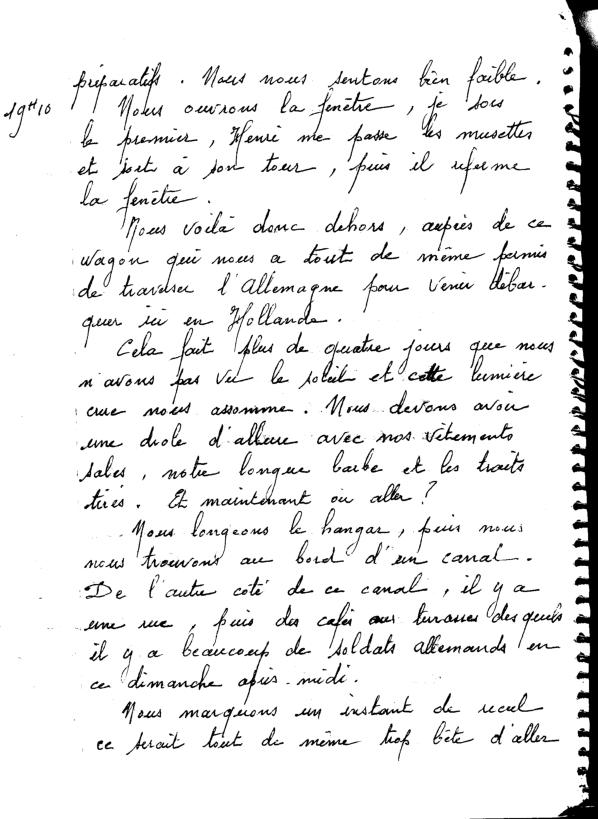 préparatifs. Nous nous sentons bien faible.
19H10 Nous ouvrons la fenêtre, je sors
le premier, Henri me passe les musettes
et sort à son tour, puis il referme
la fenêtre.
Nous voilà donc dehors, auprès de ce
wagon qui nous a tout de même permis
de traverser l'Allemagne pour venir débar-
quer ici en Hollande.
Cela fait plus de quatre jours que nous
n'avons pas vu le soleil et cette lumière
crue nous assomme. Nous devons avoir
une drole d'allure avec nos vêtements
sales, notre longue barbe et les traits
tirés. Et maintenant où aller ?
Nous longeons le hangar, puis nous
nous trouvons au bord d'un canal.
De l'autre coté de ce canal, il y a
une rue, puis des cafés aux terrasses desquels
il y a beaucoup de soldats allemands en
ce dimanche après-midi.
Nous marquons un instant de recul
ce serait tout de même trop bête d'aller